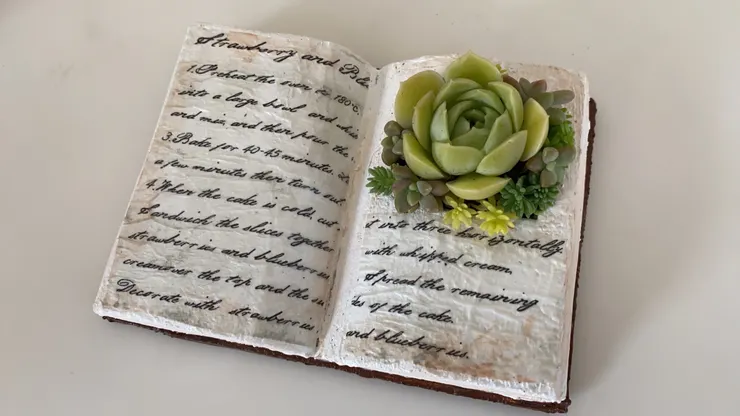 Strawberry and Blu
1. Preheat the oven to 180°c.
into a large bowl and whis
and mix, and then pour the
3. Bake for 40-45 minutes.
a few minutes then turn out
4. When the cake is cold, cut
Sandwich the slices together
strawberries and blueberries
creamover the top and the si
Decorate with strawberries
it into three horizontally
with whipped cream.
Spread the remaining
des of the cake.
and blueberries.